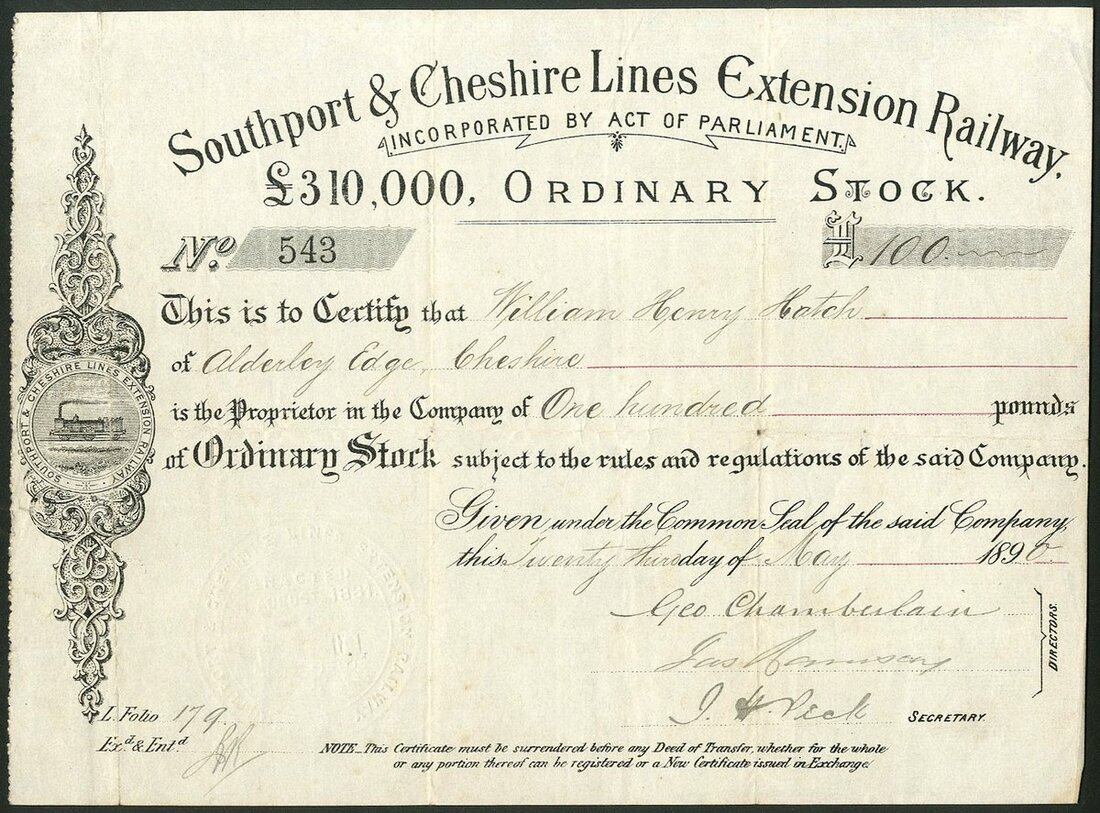 Southport & Cheshire Lines Extension Railway.
INCORPORATED BY ACT OF PARLIAMENT.
£310,000, ORDINARY STOCK.
No. 543
£ 100
This is to Certify that William Henry Hatch
of Alderley Edge, Cheshire
is the Proprietor in the Company of One hundred pounds
of Ordinary Stock subject to the rules and regulations of the said Company.
Given under the Common Seal of the said Company,
this Twenty third day of May 1890
Geo Chamberlain
Jas
DIRECTORS.
J. H Peck SECRETARY.
L. Folio 179.
Exd. & Entd
NOTE_ This Certificate must be surrendered before any Deed of Transfer, whether for the whole
or any portion thereof can be registered or a New Certificate issued in Exchange.
SOUTHPORT & CHESHIRE LINES EXTENSION RAILWAY